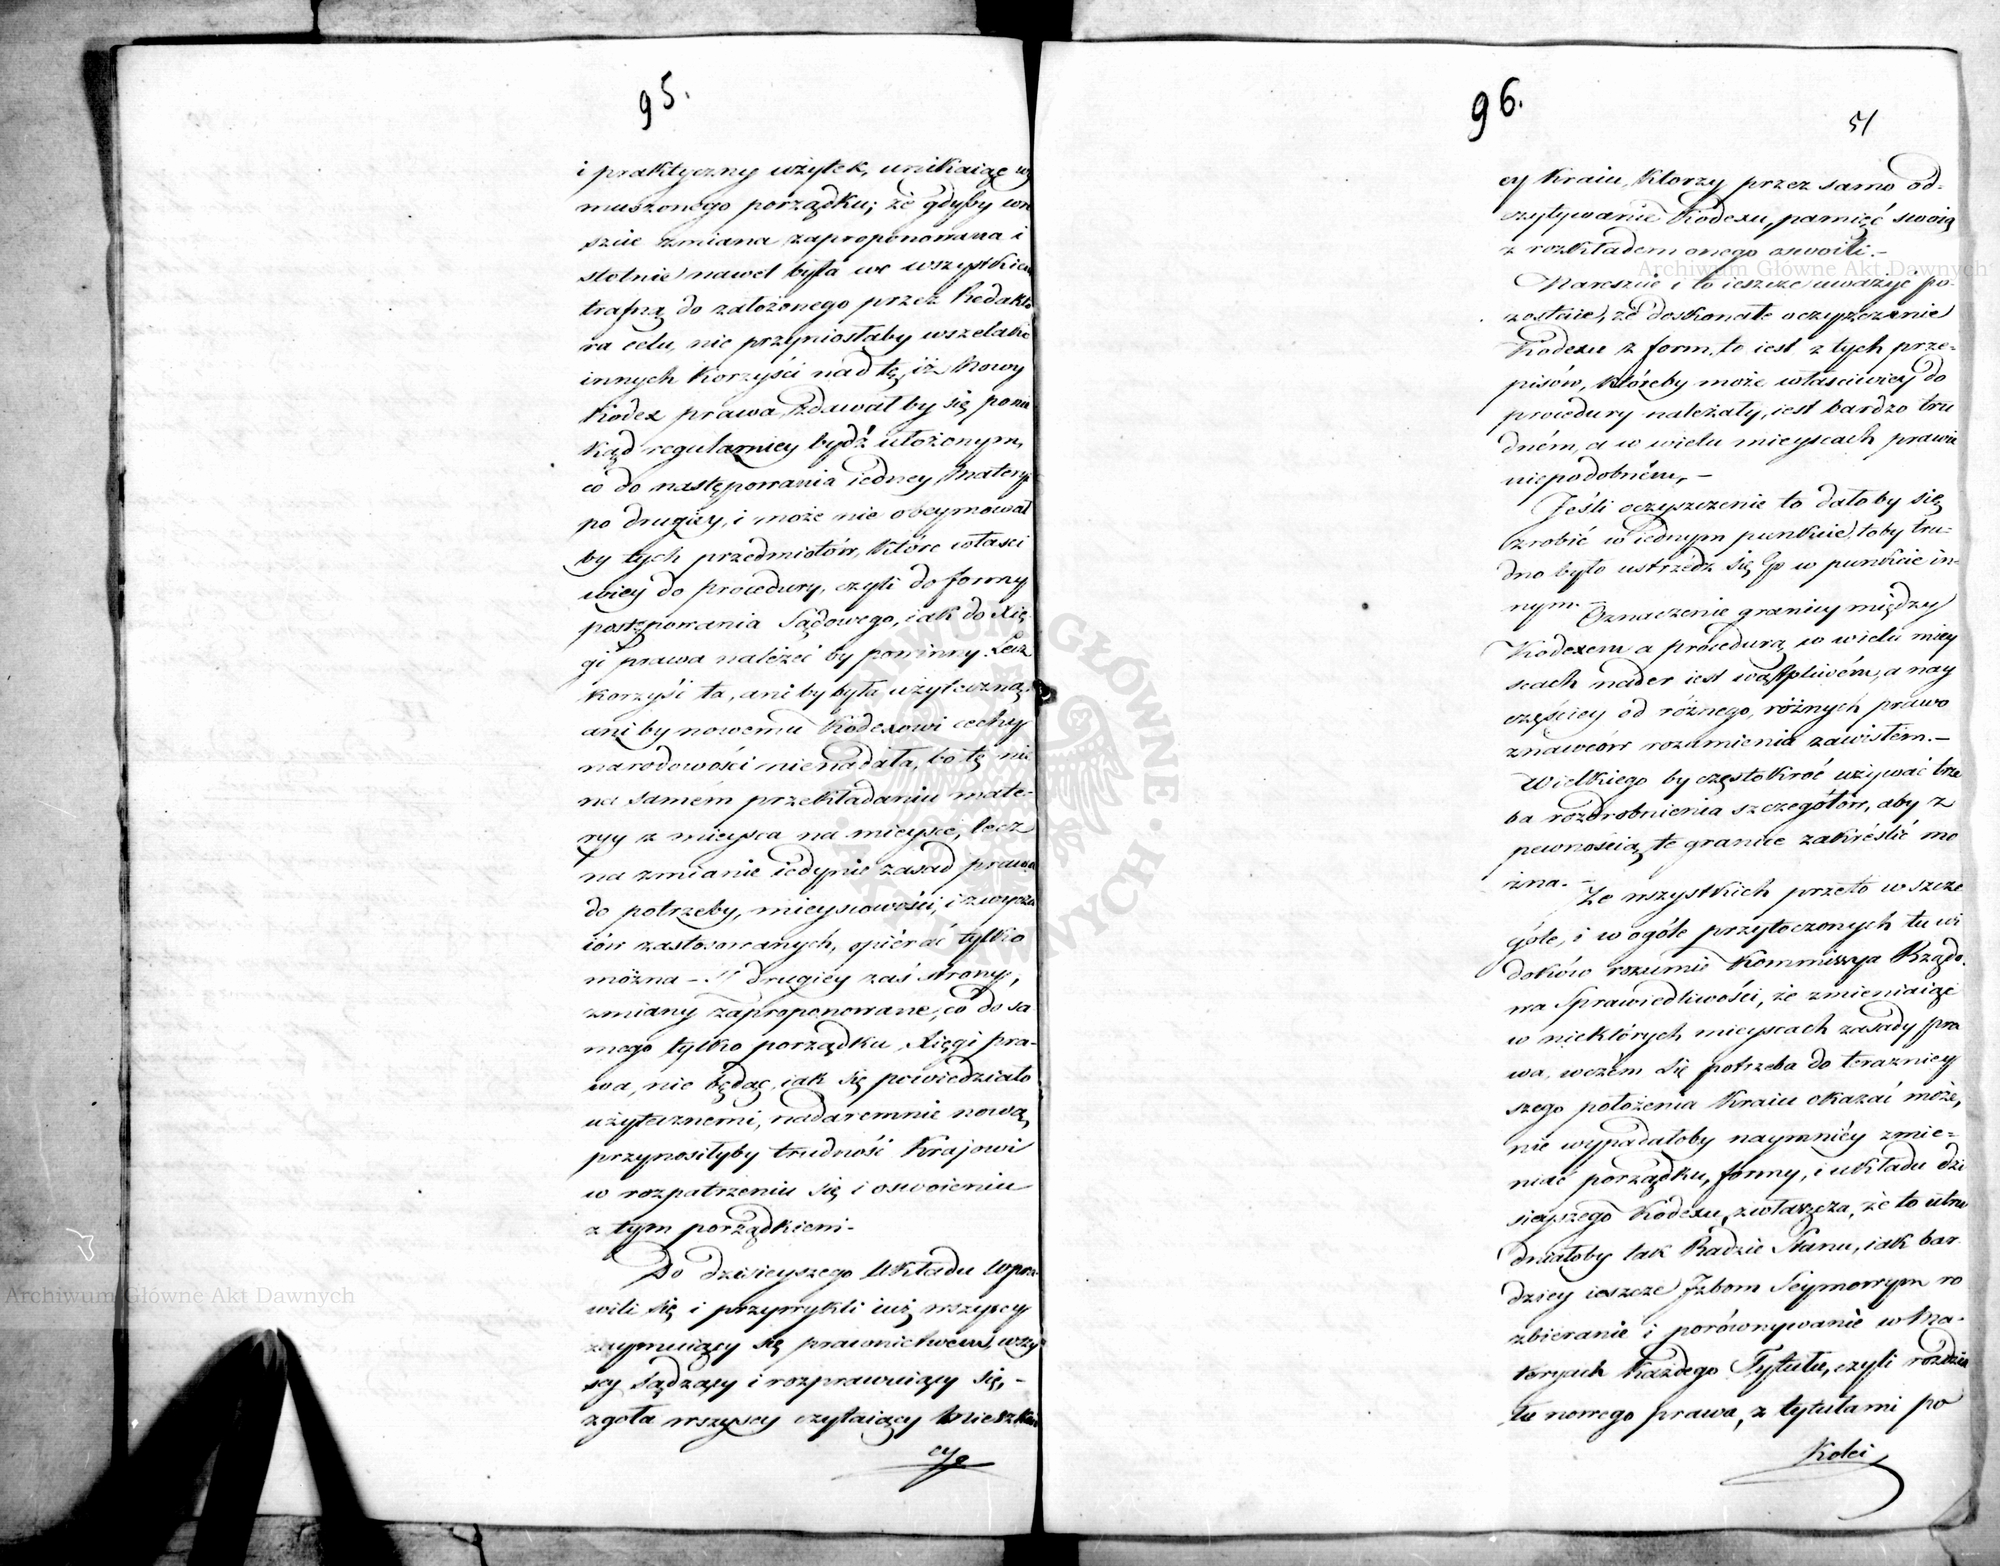 95.
i praktyczny użytek, unikaiąc wy
muszonego porządku; że gdyby wre
szcie zmiana zaproponowana i
stotnie nawet była we wszystkiem
trafną do założonego przez Redakto
ra celu, nie przyniosłaby wszelako
innych korzyści nad tę, iż Nowy
Kodex prawa zdawałby się ponie
kąd regularniey bydź ułożonym,
co do następowania iedney Materyi
po drugiey, i może nie obeymował
by tych przedmiotów, które właści
wiey do procedury, czyli do formy
postępowania Sądowego, iak do Xię
gi prawa należeć by powinny. Lecz
korzyść ta, ani by była użyteczną,
ani by nowemu Kodexowi cechy
narodowości nienadała, bo tę nie
na samém przekładaniu mate-
ryy z mieysca na mieysce, lecz
na zmianie iedynie zasad prawa
do potrzeby, mieyscowości, i zwycza
iów zastosowanych, opiérać tylko
można – Z drugiey zaś strony,
zmiany zaproponowane, co do sa
mego tylko porządku Xięgi pra-
wa, nie będąc, iak się powiedziało
użytecznemi, nadaremnie nową
przynosiłyby trudność Krajowi
w rozpatrzeniu się i oswoieniu
z tym porządkiem.
Do dzisieyszego Układu wpra-
wili się i przywykli iuż wszyscy
zaymuiący się prawnictwem, wszy
scy Sądzący i rozprawuiący się, –
zgoła wszyscy czytaiący Mieszkań
cy
96.
51
cy Kraiu, którzy przez samo od-
czytywanie Kodexu, pamięć swoią
z rozkładem onego oswoili. –
Nareszcie i to ieszcze uważyć po-
zostaie, że doskonałe oczyszczenie
Kodexu z form, to iest z tych prze-
pisów, któreby może właściwiey do
procedury należały, iest bardzo tru
dném, a w wielu mieyscach prawie
niepodobném, –
Jeśli oczyszczenie to dałoby się
zrobić w iednym punkcie, toby tru-
dno było ustrzedz się go w punkcie in-
nym. –
Oznaczenie granicy między
Kodexem a procedurą w wielu miey
scach nader iest wątpliwém, a nay
częściey od różnego, różnych prawo
znawców rozumienia zawisłem. –
Wielkiego by częstokroć używać trze
ba rozdrobnienia szczegółów, aby z
pewnością te granice zakréślić mo
żna. –
Ze wszystkich przeto w szcze
góle, i w ogóle przytoczonych tu wi
doków rozumie Kommissya Rządo-
wa Sprawiedliwości, że zmieniaiąc
w niektórych mieyscach zasady pra
wa, w czém się potrzeba do teraźniey
szego położenia Kraiu okazać może,
nie wypadałoby naymniéy zmie-
niać porządku, formy, i układu dzi
sieyszego Kodexu, zwłaszcza, że to utru
dniałoby tak Radzie Stanu, iak bar
dziey ieszcze Izbom Seymowym ro
zbieranie i porównywanie w Ma-
teryach każdego Tytułu, czyli rozdzia
łu nowego prawa, z tytułami po
Kolei
Archiwum Główne Akt Dawnych
Archiwum Główne Akt Dawnych
ARCHIWUM GŁÓWNE AKT DAWNYCH